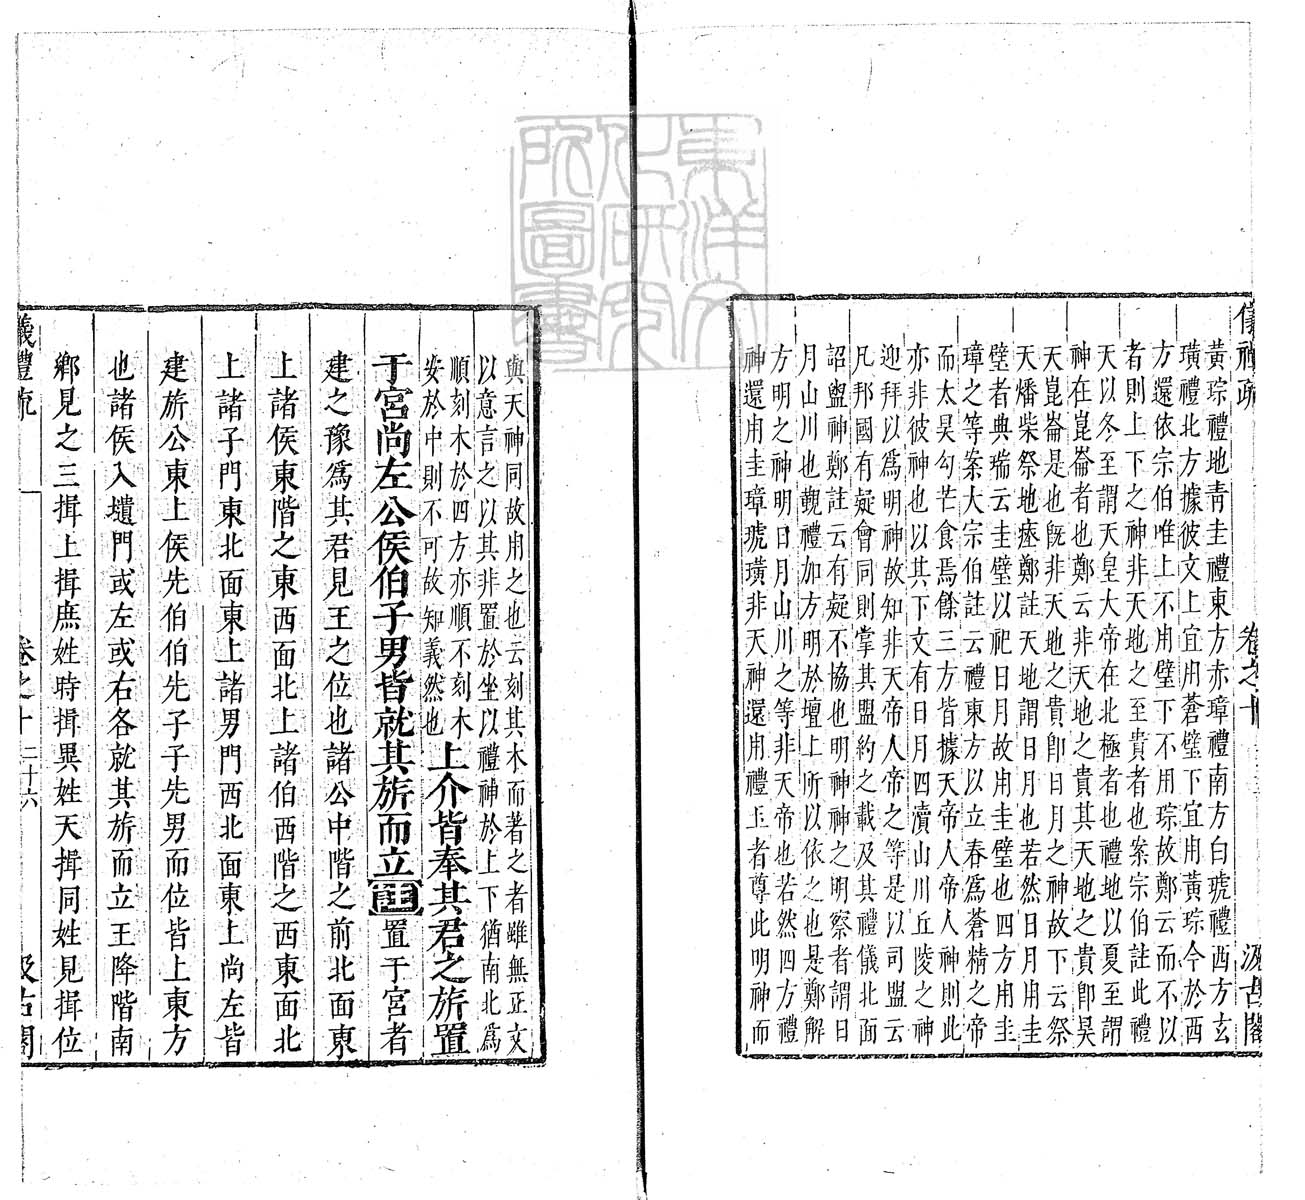 儀禮疏 卷之十 汲古閣
黃琮禮地靑圭禮東方赤璋禮南方白琥禮西方玄
璜禮北方據彼文上宜用蒼璧下宜用黃琮今於西
方還依宗伯唯上不用璧下不用琮故鄭云而不以
者則上下之神非天地之至貴者也案宗伯註此禮
天以冬至謂天皇大帝在北極者也禮地以夏至謂
神在崑崙者也鄭云非天地之貴其天地之貴卽昊
天崑崙是也旣非天地之貴卽日月之神故下云祭
天燔柴祭地瘞鄭註天地謂日月也若然日月用圭
璧者典瑞云圭璧以祀日月故用圭璧也四方用圭
璋之等案大宗伯註云禮東方以立春爲蒼精之帝
而太昊勾芒食焉餘三方皆據天帝人帝人神則此
亦非彼神也以其下文有日月四瀆山川丘陵之神
迎拜以爲明神故知非天帝人帝之等是以司盟云
凡邦國有疑會同則掌其盟約之載及其禮儀北面
詔盥神鄭註云有疑不協也明神神之明察者謂日
月山川也觀禮加方明於壇上所以依之也是鄭解
方明之神明日月山川之等非天帝也若然四方禮
神還用圭璋琥璜非天神還用禮玉者尊此明神而
與天神同故用之也云刻其木而著之者雖無正文
以意言之以其非置於坐以禮神於上下猶南北爲
順刻木於四方亦順不刻木
安於中則不可故知義然也
上介皆奉其君之旂置
于宮尚左公侯伯子男皆就其旂而立註置于宮者
建之豫爲其君見王之位也諸公中階之前北面東
上諸侯東階之東西面北上諸伯西階之西東面北
上諸子門東北面東上諸男門西北面東上尚左皆
建旂公東上侯先伯伯先子子先男而位皆上東方
也諸侯入壝門或左或右各就其旂而立王降階南
鄉見之三揖土揖庶姓時揖異姓天揖同姓見揖位
儀禮疏 卷之十 二十六 汲古閣
東洋文化研究所圖書